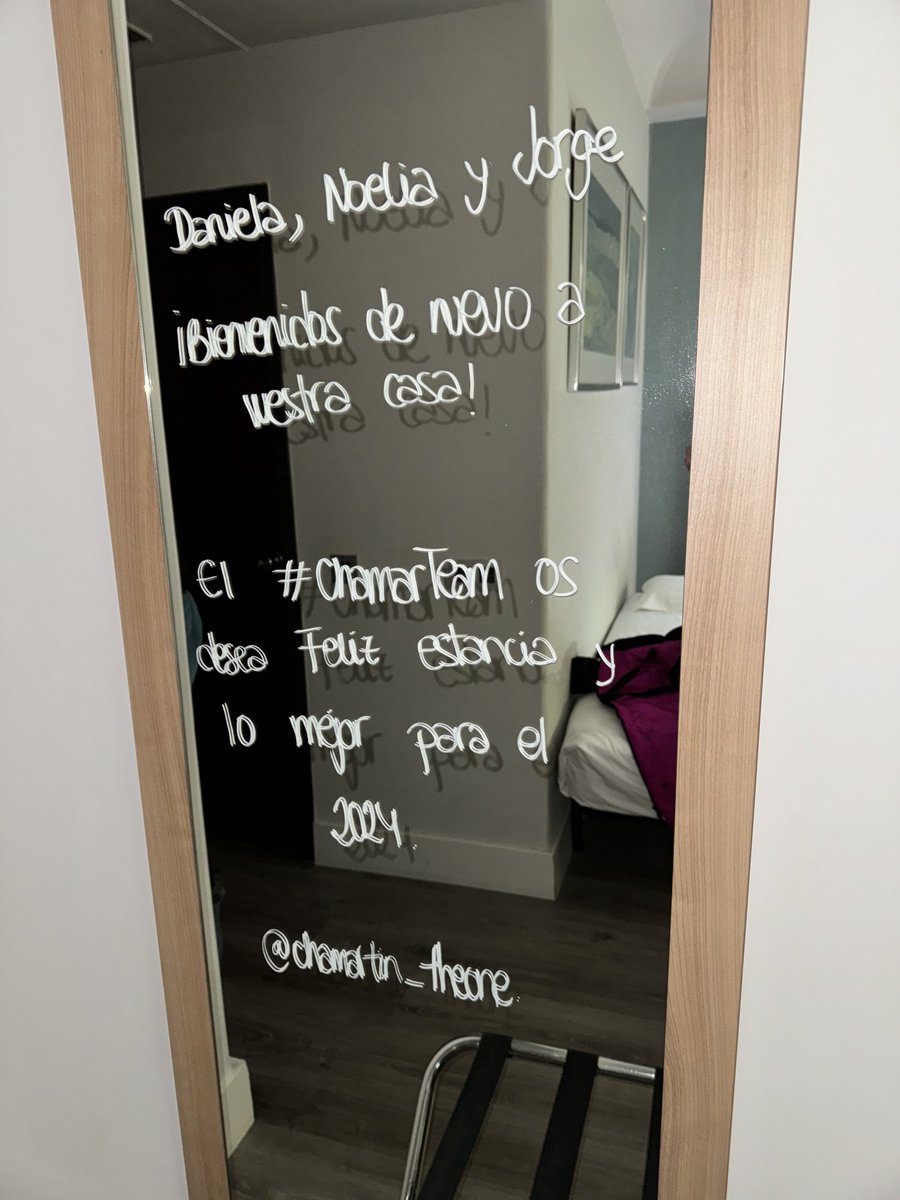 Daniela, Noelia y Jorge
¡Bienvenidos de nuevo a
vuestra casa!
El #ChamarTeam os
desea Feliz estancia y
lo mejor para el
2024.
@chamartin_theone.